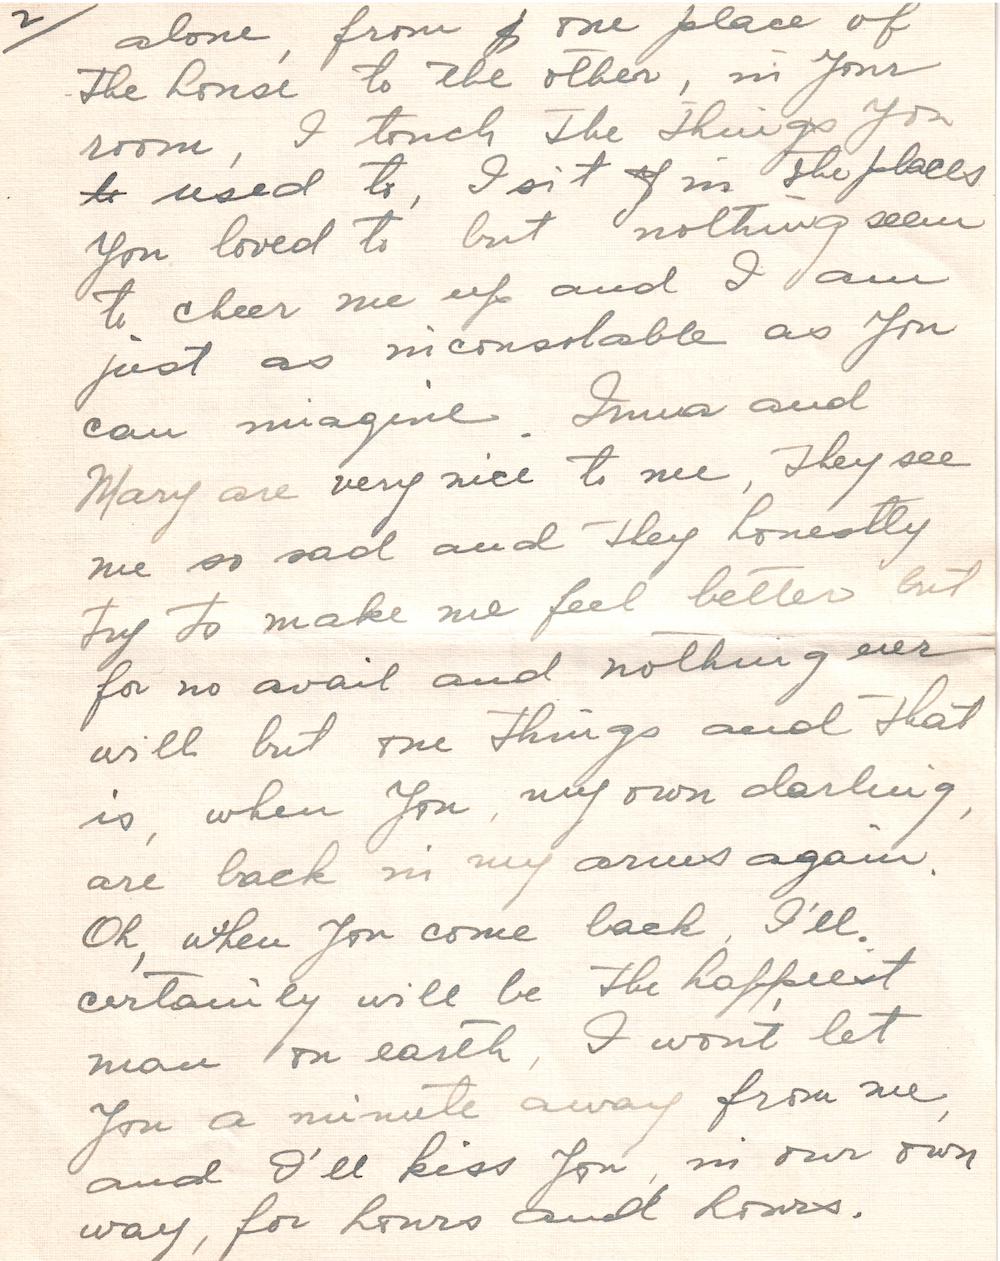 2/ alone, from one place of
the house to the other, in your
room, I touch the things you
to used to, I sit in the places
you loved to but nothing seem
to cheer me up and I am
just as inconsolable as you
can imagine. Imma and
Mary are very nice to me, they see
me so sad and they honestly
try to make me feel better but
for no avail and nothing ever
will but one things and that
is, when you, my own darling,
are back in my arms again.
Oh, when you come back, I'll.
certainly will be the happiest
man on earth, I won't let
you a minute away from me,
and I'll kiss you, in our own
way, for hours and hours.